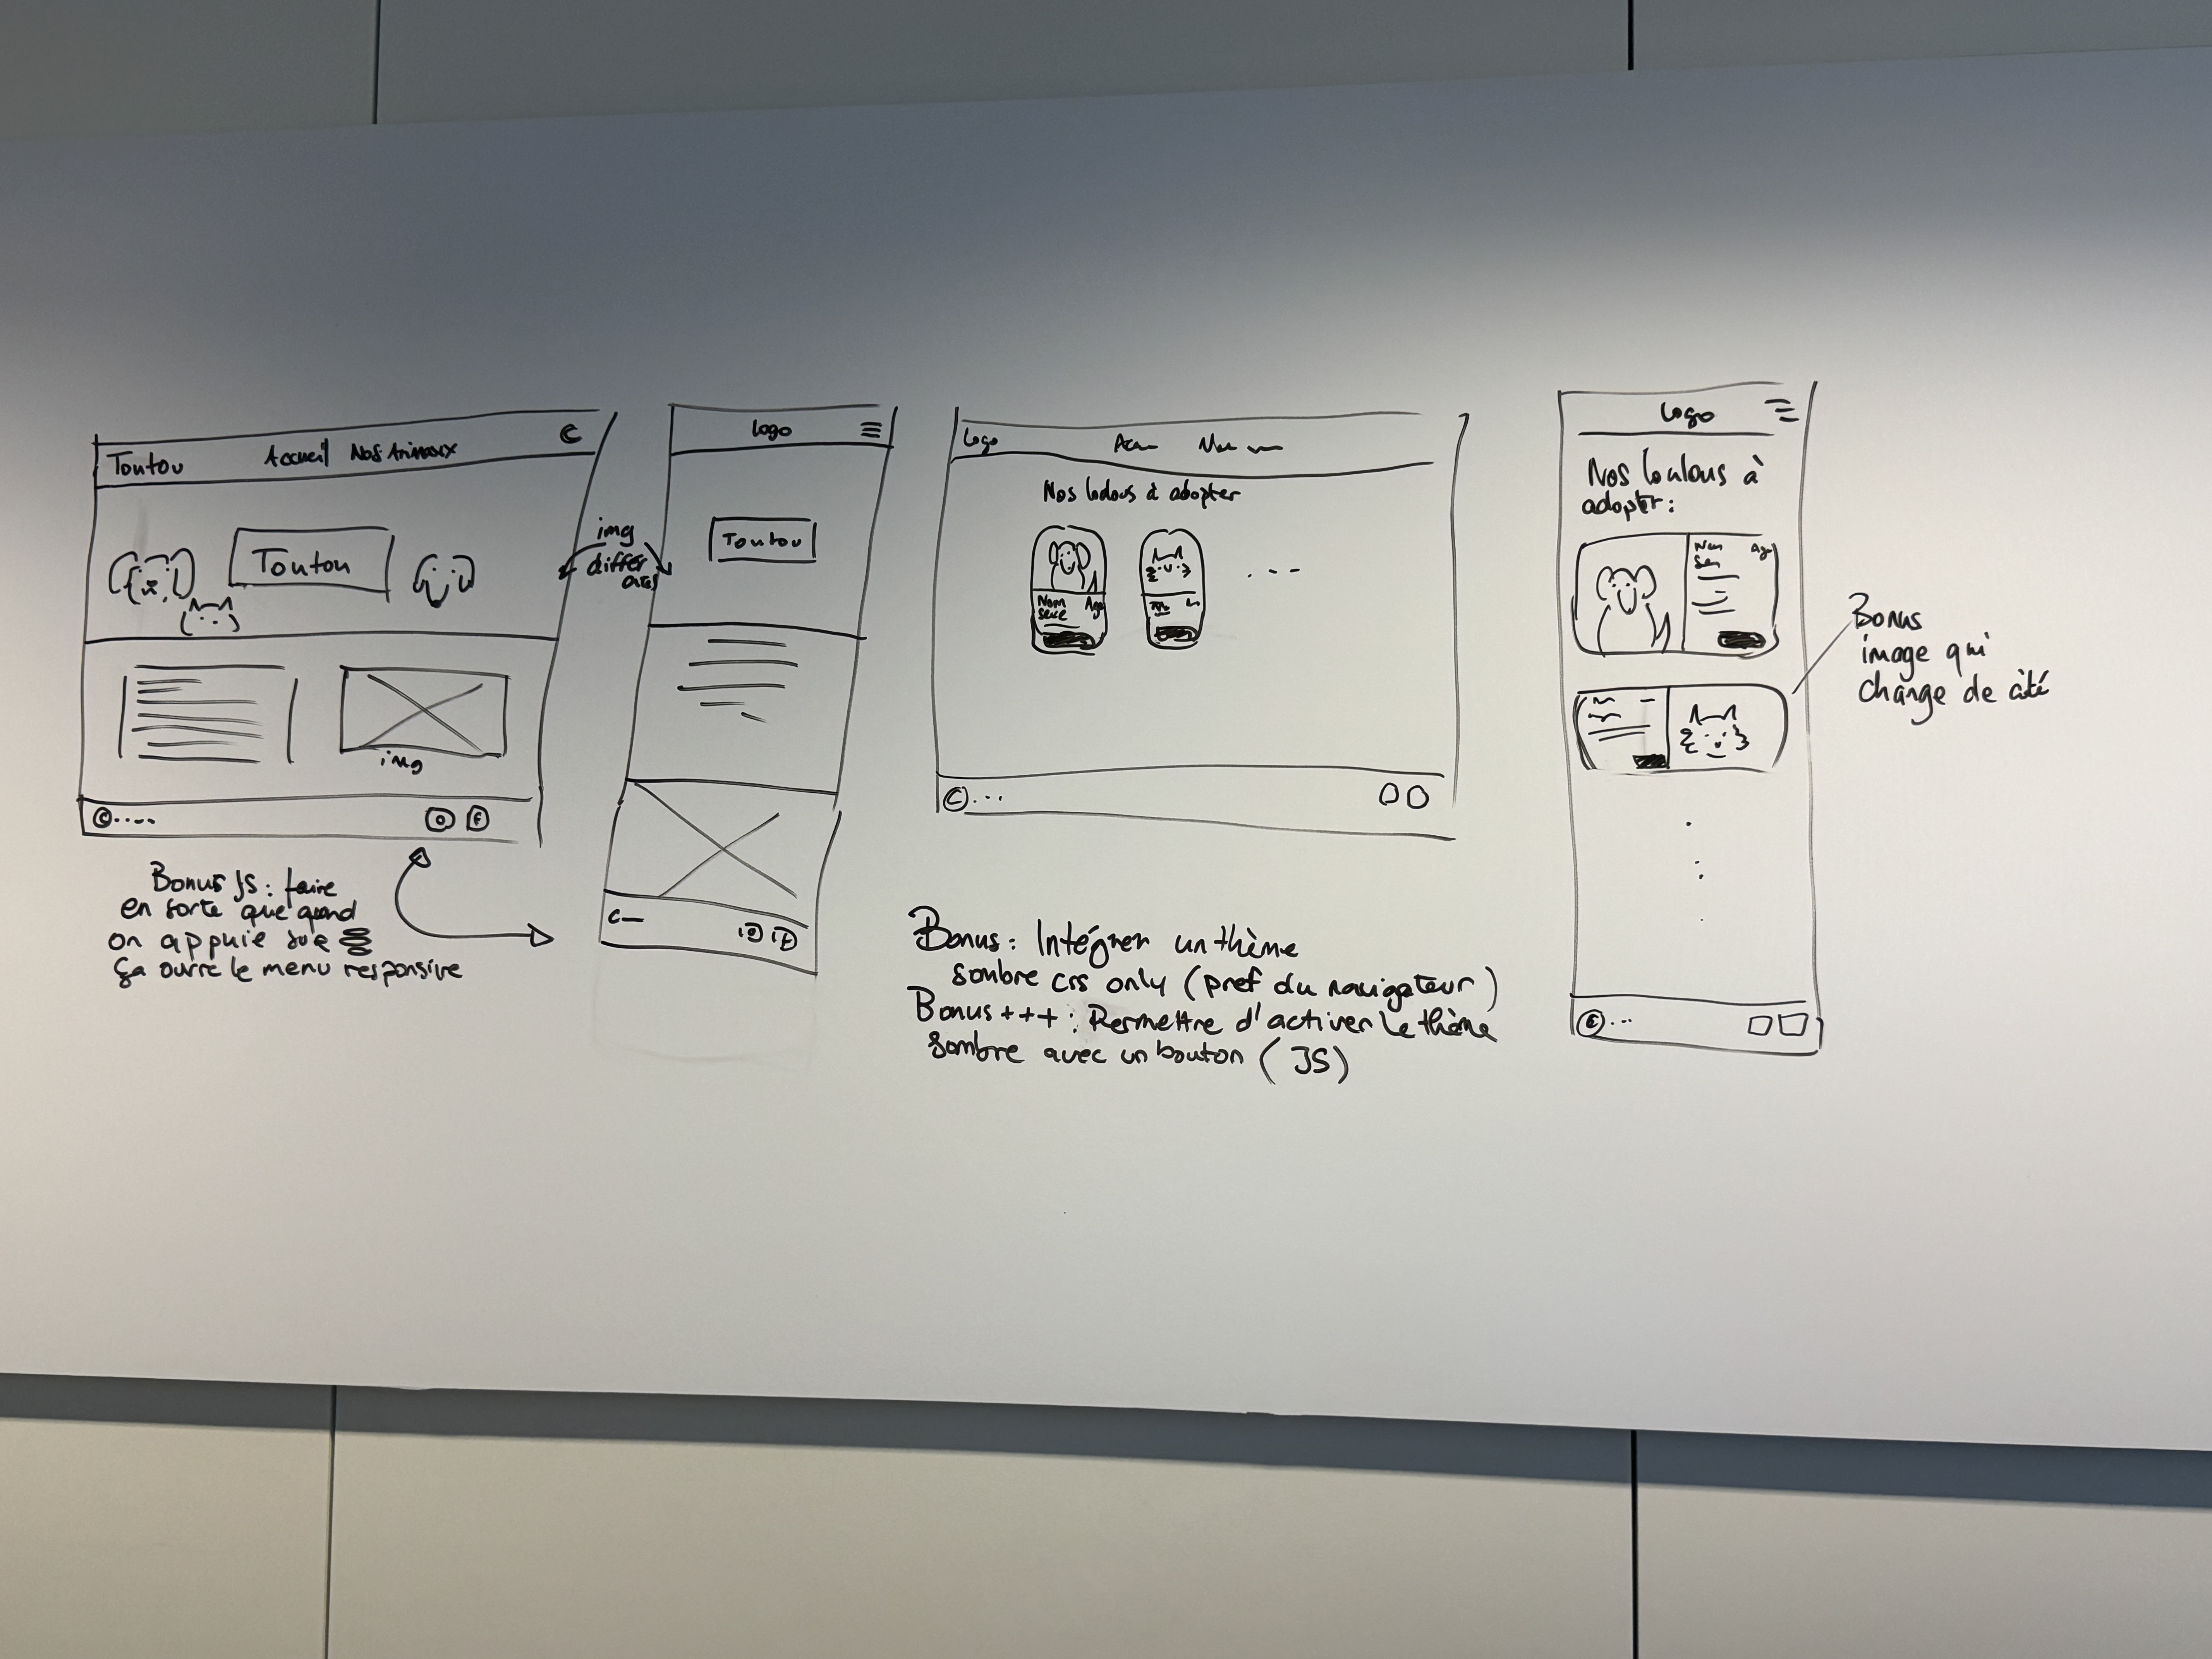 Toutou Accueil Nos Animaux
Toutou
img
© ....
f
Bonus JS : faire
en sorte que quand
on appuie sur
ça ouvre le menu responsive
img
différentes
logo
Toutou
Logo
Nos loulous à adopter
Nom Age
sexe
© ...
Bonus : Intégrer un thème
sombre css only (pref du navigateur)
Bonus +++ : Permettre d'activer le thème
sombre avec un bouton (JS)
Logo
Nos loulous à
adopter :
Nom Age
© ...
Bonus
image qui
change de côté